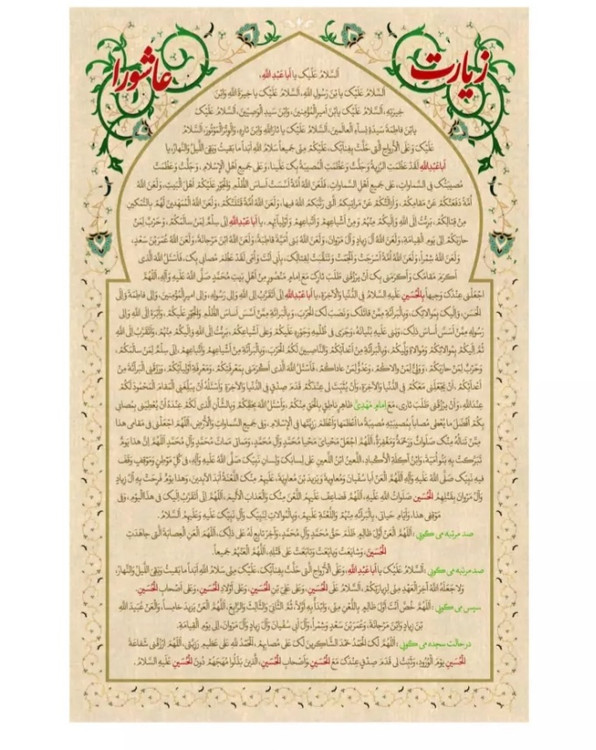 زیارت عاشورا
اَلسَّلامُ عَلَیْکَ یا اَبا عَبْدِ اللَّهِ،
اَلسَّلامُ عَلَیْکَ یَا بْنَ رَسُولِ اللَّهِ، اَلسَّلامُ عَلَیْکَ یا خِیَرَةَ اللَّهِ وَابْنَ
خِیَرَتِهِ، اَلسَّلامُ عَلَیْکَ یَا بْنَ اَمیرِالْمُؤْمِنینَ، وَابْنَ سَیِّدِ الْوَصِیّینَ، اَلسَّلامُ عَلَیْکَ
یَا بْنَ فاطِمَةَ سَیِّدَةِ نِساءِ الْعالَمینَ، اَلسَّلامُ عَلَیْکَ یا ثارَاللَّهِ وَابْنَ ثارِهِ، وَالْوِتْرَ الْمَوْتُورَ، اَلسَّلامُ
عَلَیْکَ وَ عَلَی الْاَرْواحِ الَّتی حَلَّتْ بِفِنائِکَ، عَلَیْکُمْ مِنّی جَمیعاً سَلامُ اللَّهِ اَبَداً ما بَقیتُ وَ بَقِیَ اللَّیْلُ وَالنَّهارُ، یا
اَباعَبْدِاللَّهِ لَقَدْ عَظُمَتِ الرَّزِیَّةُ وَ جَلَّتْ وَ عَظُمَتِ الْمُصیبَةُ بِکَ عَلَیْنا، وَ عَلی جَمیعِ اَهْلِ الْاِسْلامِ، وَ جَلَّتْ وَ عَظُمَتْ
مُصیبَتُکَ فِی السَّماواتِ، عَلی جَمیعِ اَهْلِ السَّماواتِ، فَلَعَنَ اللَّهُ اُمَّةً اَسَّسَتْ اَساسَ الظُّلْمِ وَالْجَوْرِ عَلَیْکُمْ اَهْلَ الْبَیْتِ، وَ لَعَنَ اللَّهُ
اُمَّةً دَفَعَتْکُمْ عَنْ مَقامِکُمْ، وَ اَزالَتْکُمْ عَنْ مَراتِبِکُمُ الَّتی رَتَّبَکُمُ اللَّهُ فیها، وَ لَعَنَ اللَّهُ اُمَّةً قَتَلَتْکُمْ، وَ لَعَنَ اللَّهُ الْمُمَهِّدینَ لَهُمْ بِالتَّمْکینِ
مِنْ قِتالِکُمْ، بَرِئْتُ اِلَی اللَّهِ وَ اِلَیْکُمْ مِنْهُمْ وَ مِنْ اَشْیاعِهِمْ وَ اَتْباعِهِمْ وَ اَوْلِیائِهِمْ، یا اَباعَبْدِاللَّهِ اِنّی سِلْمٌ لِمَنْ سالَمَکُمْ، وَ حَرْبٌ لِمَنْ
حارَبَکُمْ اِلی یَوْمِ الْقِیامَةِ، وَ لَعَنَ اللَّهُ آلَ زِیادٍ وَ آلَ مَرْوانَ، وَ لَعَنَ اللَّهُ بَنی اُمَیَّةَ قاطِبَةً، وَ لَعَنَ اللَّهُ ابْنَ مَرْجانَةَ، وَ لَعَنَ اللَّهُ عُمَرَ بْنَ سَعْدٍ،
وَ لَعَنَ اللَّهُ شِمْراً، وَ لَعَنَ اللَّهُ اُمَّةً اَسْرَجَتْ وَ اَلْجَمَتْ وَ تَنَقَّبَتْ لِقِتالِکَ، بِاَبی اَنْتَ وَ اُمّی لَقَدْ عَظُمَ مُصابی بِکَ، فَاَسْئَلُ اللَّهَ الَّذی
اَکْرَمَ مَقامَکَ وَ اَکْرَمَنی بِکَ اَنْ یَرْزُقَنی طَلَبَ ثارِکَ مَعَ اِمامٍ مَنْصُورٍ مِنْ اَهْلِ بَیْتِ مُحَمَّدٍ صَلَّی اللَّهُ عَلَیْهِ وَ آلِهِ، اَللّهُمَّ
اجْعَلْنی عِنْدَکَ وَجیهاً بِالْحُسَیْنِ عَلَیْهِ السَّلامُ فِی الدُّنْیا وَ الْاخِرَةِ، یا اَباعَبْدِاللَّهِ اِنّی اَتَقَرَّبُ اِلَی اللَّهِ وَ اِلی رَسُولِهِ، وَ اِلی اَمیرِالْمُؤْمِنینَ، وَ اِلی فاطِمَةَ وَ اِلَی
الْحَسَنِ، وَ اِلَیْکَ بِمُوالاتِکَ، وَ بِالْبَرائَةِ مِمَّنْ قاتَلَکَ وَ نَصَبَ لَکَ الْحَرْبَ، وَ بِالْبَرائَةِ مِمَّنْ اَسَّسَ اَساسَ الظُّلْمِ وَالْجَوْرِ عَلَیْکُمْ، وَ اَبْرَءُ اِلَی اللَّهِ وَ اِلی
رَسُولِهِ مِمَّنْ اَسَّسَ اَساسَ ذلِکَ، وَ بَنی عَلَیْهِ بُنْیانَهُ، وَ جَری فی ظُلْمِهِ وَ جَوْرِهِ عَلَیْکُمْ وَ عَلی اَشْیاعِکُمْ، بَرِئْتُ اِلَی اللَّهِ وَ اِلَیْکُمْ مِنْهُمْ، وَ اَتَقَرَّبُ اِلَی اللَّهِ
ثُمَّ اِلَیْکُمْ بِمُوالاتِکُمْ وَ مُوالاةِ وَلِیِّکُمْ، وَ بِالْبَرائَةِ مِنْ اَعْدائِکُمْ وَ النَّاصِبینَ لَکُمُ الْحَرْبَ، وَ بِالْبَرائَةِ مِنْ اَشْیاعِهِمْ وَ اَتْباعِهِمْ، اِنّی سِلْمٌ لِمَنْ سالَمَکُمْ،
وَ حَرْبٌ لِمَنْ حارَبَکُمْ، وَ وَلِیٌّ لِمَنْ والاکُمْ، وَ عَدُوٌّ لِمَنْ عاداکُمْ، فَاَسْئَلُ اللَّهَ الَّذی اَکْرَمَنی بِمَعْرِفَتِکُمْ، وَ مَعْرِفَةِ اَوْلِیائِکُمْ، وَ رَزَقَنِی الْبَرائَةَ مِنْ
اَعْدائِکُمْ، اَنْ یَجْعَلَنی مَعَکُمْ فِی الدُّنْیا وَالْاخِرَةِ، وَ اَنْ یُثَبِّتَ لی عِنْدَکُمْ قَدَمَ صِدْقٍ فِی الدُّنْیا وَالْاخِرَةِ، وَ اَسْئَلُهُ اَنْ یُبَلِّغَنِی الْمَقامَ الْمَحْمُودَ لَکُمْ
عِنْدَاللَّهِ، وَ اَنْ یَرْزُقَنی طَلَبَ ثاری، مَعَ اِمامٍ مَهْدِیٍّ ظاهِرٍ ناطِقٍ بِالْحَقِّ مِنْکُمْ، وَ اَسْئَلُ اللَّهَ بِحَقِّکُمْ وَ بِالشَّاْنِ الَّذی لَکُمْ عِنْدَهُ اَنْ یُعْطِیَنی بِمُصابی
بِکُمْ اَفْضَلَ ما یُعْطی مُصاباً بِمُصیبَتِهِ مُصیبَةً ما اَعْظَمَها وَ اَعْظَمَ رَزِیَّتَها فِی الْاِسْلامِ، وَ فی جَمیعِ السَّماواتِ وَالْاَرْضِ، اَللّهُمَّ اجْعَلْنی فی مَقامی هذا
مِمَّنْ تَنالُهُ مِنْکَ صَلَواتٌ وَ رَحْمَةٌ وَ مَغْفِرَةٌ، اَللّهُمَّ اجْعَلْ مَحْیایَ مَحْیا مُحَمَّدٍ وَ آلِ مُحَمَّدٍ، وَ مَماتی مَماتَ مُحَمَّدٍ وَ آلِ مُحَمَّدٍ، اَللّهُمَّ اِنَّ هذا یَوْمٌ
تَبَرَّکَتْ بِهِ بَنُو اُمَیَّةَ، وَابْنُ آکِلَةِ الْاَکْبادِ، اللَّعینُ ابْنُ اللَّعینِ عَلی لِسانِکَ وَ لِسانِ نَبِیِّکَ صَلَّی اللَّهُ عَلَیْهِ وَ آلِهِ، فی کُلِّ مَوْطِنٍ وَ مَوْقِفٍ وَقَفَ
فیهِ نَبِیُّکَ صَلَّی اللَّهُ عَلَیْهِ وَ آلِهِ، اَللّهُمَّ الْعَنْ اَباسُفْیانَ وَ مُعاوِیَةَ وَ یَزیدَ بْنَ مُعاوِیَةَ، عَلَیْهِمْ مِنْکَ اللَّعْنَةُ اَبَدَ الْابِدینَ، وَ هذا یَوْمٌ فَرِحَتْ بِهِ آلُ زِیادٍ
وَ آلُ مَرْوانَ بِقَتْلِهِمُ الْحُسَیْنَ صَلَواتُ اللَّهِ عَلَیْهِ، اَللّهُمَّ فَضاعِفْ عَلَیْهِمُ اللَّعْنَ مِنْکَ وَالْعَذابَ الْاَلیمَ، اَللّهُمَّ اِنّی اَتَقَرَّبُ اِلَیْکَ فی هذَا الْیَوْمِ، وَ فی
مَوْقِفی هذا، وَ اَیَّامِ حَیاتی، بِالْبَرائَةِ مِنْهُمْ وَاللَّعْنَةِ عَلَیْهِمْ، وَ بِالْمُوالاتِ لِنَبِیِّکَ وَ آلِ نَبِیِّکَ عَلَیْهِ وَ عَلَیْهِمُ السَّلامُ.
صد مرتبه می گویی: اَللّهُمَّ الْعَنْ اَوَّلَ ظالِمٍ ظَلَمَ حَقَّ مُحَمَّدٍ وَ آلِ مُحَمَّدٍ، وَ آخِرَ تابِعٍ لَهُ عَلی ذلِکَ، اَللّهُمَّ الْعَنِ الْعِصابَةَ الَّتی جاهَدَتِ
الْحُسَیْنَ، وَ شایَعَتْ وَ بایَعَتْ وَ تابَعَتْ عَلی قَتْلِهِ، اَللّهُمَّ الْعَنْهُمْ جَمیعاً.
صد مرتبه می گویی: اَلسَّلامُ عَلَیْکَ یا اَبا عَبْدِاللَّهِ، وَ عَلَی الْاَرْواحِ الَّتی حَلَّتْ بِفِنائِکَ، عَلَیْکَ مِنّی سَلامُ اللَّهِ اَبَداً ما بَقیتُ وَ بَقِیَ اللَّیْلُ وَالنَّهارُ،
وَ لا جَعَلَهُ اللَّهُ آخِرَ الْعَهْدِ مِنّی لِزِیارَتِکُمْ، اَلسَّلامُ عَلَی الْحُسَیْنِ، وَ عَلی عَلِیِّ بْنِ الْحُسَیْنِ، وَ عَلی اَوْلادِ الْحُسَیْنِ، وَ عَلی اَصْحابِ الْحُسَیْنِ.
سپس می گویی: اَللّهُمَّ خُصَّ اَنْتَ اَوَّلَ ظالِمٍ بِاللَّعْنِ مِنّی، وَابْدَأْ بِهِ اَوَّلاً، ثُمَّ الثَّانِیَ وَالثَّالِثَ وَالرَّابِعَ، اَللّهُمَّ الْعَنْ یَزیدَ خامِساً، وَالْعَنْ عُبَیْدَ اللَّهِ
بْنَ زِیادٍ وَابْنَ مَرْجانَةَ، وَ عُمَرَ بْنَ سَعْدٍ وَ شِمْراً، وَ آلَ اَبی سُفْیانَ وَ آلَ زِیادٍ وَ آلَ مَرْوانَ، اِلی یَوْمِ الْقِیامَةِ.
در حالت سجده می گویی: اَللّهُمَّ لَکَ الْحَمْدُ حَمْدَ الشَّاکِرینَ لَکَ عَلی مُصابِهِمْ، اَلْحَمْدُ لِلَّهِ عَلی عَظیمِ رَزِیَّتی، اَللّهُمَّ ارْزُقْنی شَفاعَةَ
الْحُسَیْنِ یَوْمَ الْوُرُودِ، وَ ثَبِّتْ لی قَدَمَ صِدْقٍ عِنْدَکَ مَعَ الْحُسَیْنِ وَ اَصْحابِ الْحُسَیْنِ، الَّذینَ بَذَلُوا مُهَجَهُمْ دُونَ الْحُسَیْنِ عَلَیْهِ السَّلامُ.